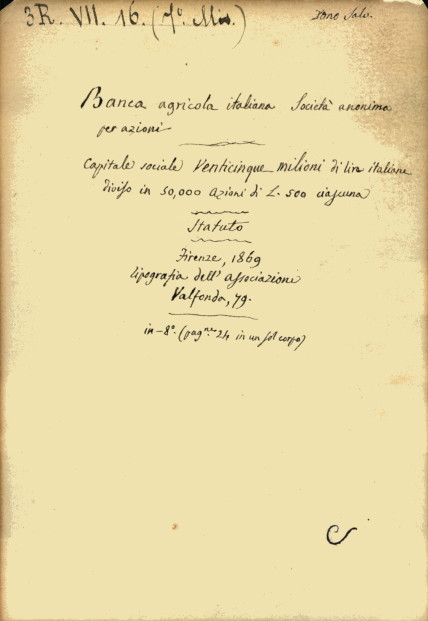 3R. VII. 16. (7º. Mis.)
Dono Salv.
Banca agricola italiana Società anonima
per azioni
Capitale sociale Venticinque milioni di lire italiane
diviso in 50,000 Azioni di L. 500 ciascuna
Statuto
Firenze, 1869
tipografia dell' associazione
Valfonda, 79.
in-8º. (pagne 24 in un sol corpo)